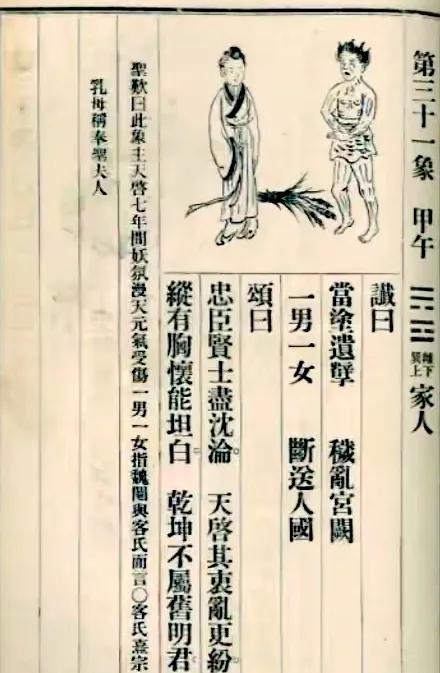 第三十一象 甲午 ䷤ 離下巽上 家人
讖曰
當塗遺孽 穢亂宮闕
一男一女 斷送人國
頌曰
忠臣賢士盡沈淪 天啓其衷亂更紛
縱有胸懷能坦白 乾坤不屬舊明君
聖歎曰此象主天啓七年間妖氛漫天元氣受傷一男一女指魏閹與客氏而言〇客氏熹宗
乳母稱奉聖夫人